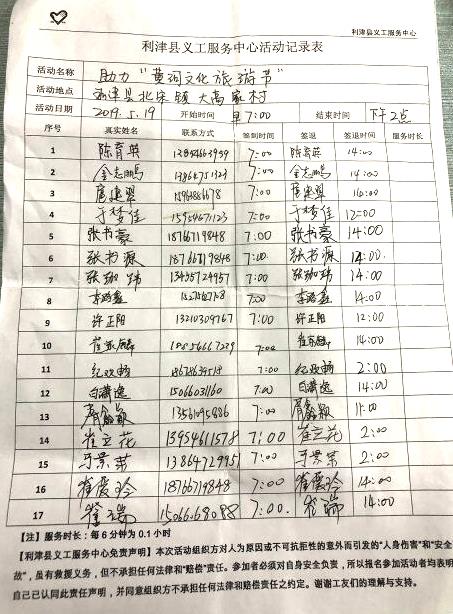 利津县义工服务中心
利津县义工服务中心活动记录表
活动名称 助力"黄河文化旅游节"
活动地点 利津县北宋镇大高家村
活动日期 2019.5.19 开始时间 早7:00 结束时间 下午2点
序号 真实姓名 联系方式 签到时间 签退 签退时间 服务时长
1 陈育英 7:00 陈育英 14:00
2 金志鹏 7:00 金志鹏 14:00
3 7:00 14:00
4 于梦佳 15954671123 7:00 于梦佳 12:00
5 张书豪 18766719848 7:00 张书豪 14:00
6 张书源 18766719848 7:00 张书源 14:00
7 张珈炜 13455724957 7:00 张珈炜 14:00
8 7:00 14:00
9 许正阳 13210309767 7:00 许正阳 12:00
10 7:00 14:00
11 纪双畅 7:00 纪双畅 2:00
12 白潇逸 15066031160 7:00 白潇逸 14:00
13 7:00
14 崔立花 13954611578 7:00 崔立花 2:00
15 于景荣 7:00 于景荣 2:00
16 崔俊玲 18766719848 7:00 崔俊玲 14:00
17 崔瑞 7:00 崔瑞 14:00
【注】服务时长:每6分钟为0.1小时
【利津县义工服务中心免责声明】本次活动组织方对人为原因或不可抗拒性的意外而引发的"人身伤害"和"安全
故",虽有救援义务,但不承担任何法律和"赔偿"责任。参加者必须对自身安全负责,所以报名参加活动者均表明
自己已认同此责任声明,并同意组织方不承担任何法律和赔偿责任之约定。谢谢工友们的理解与支持。